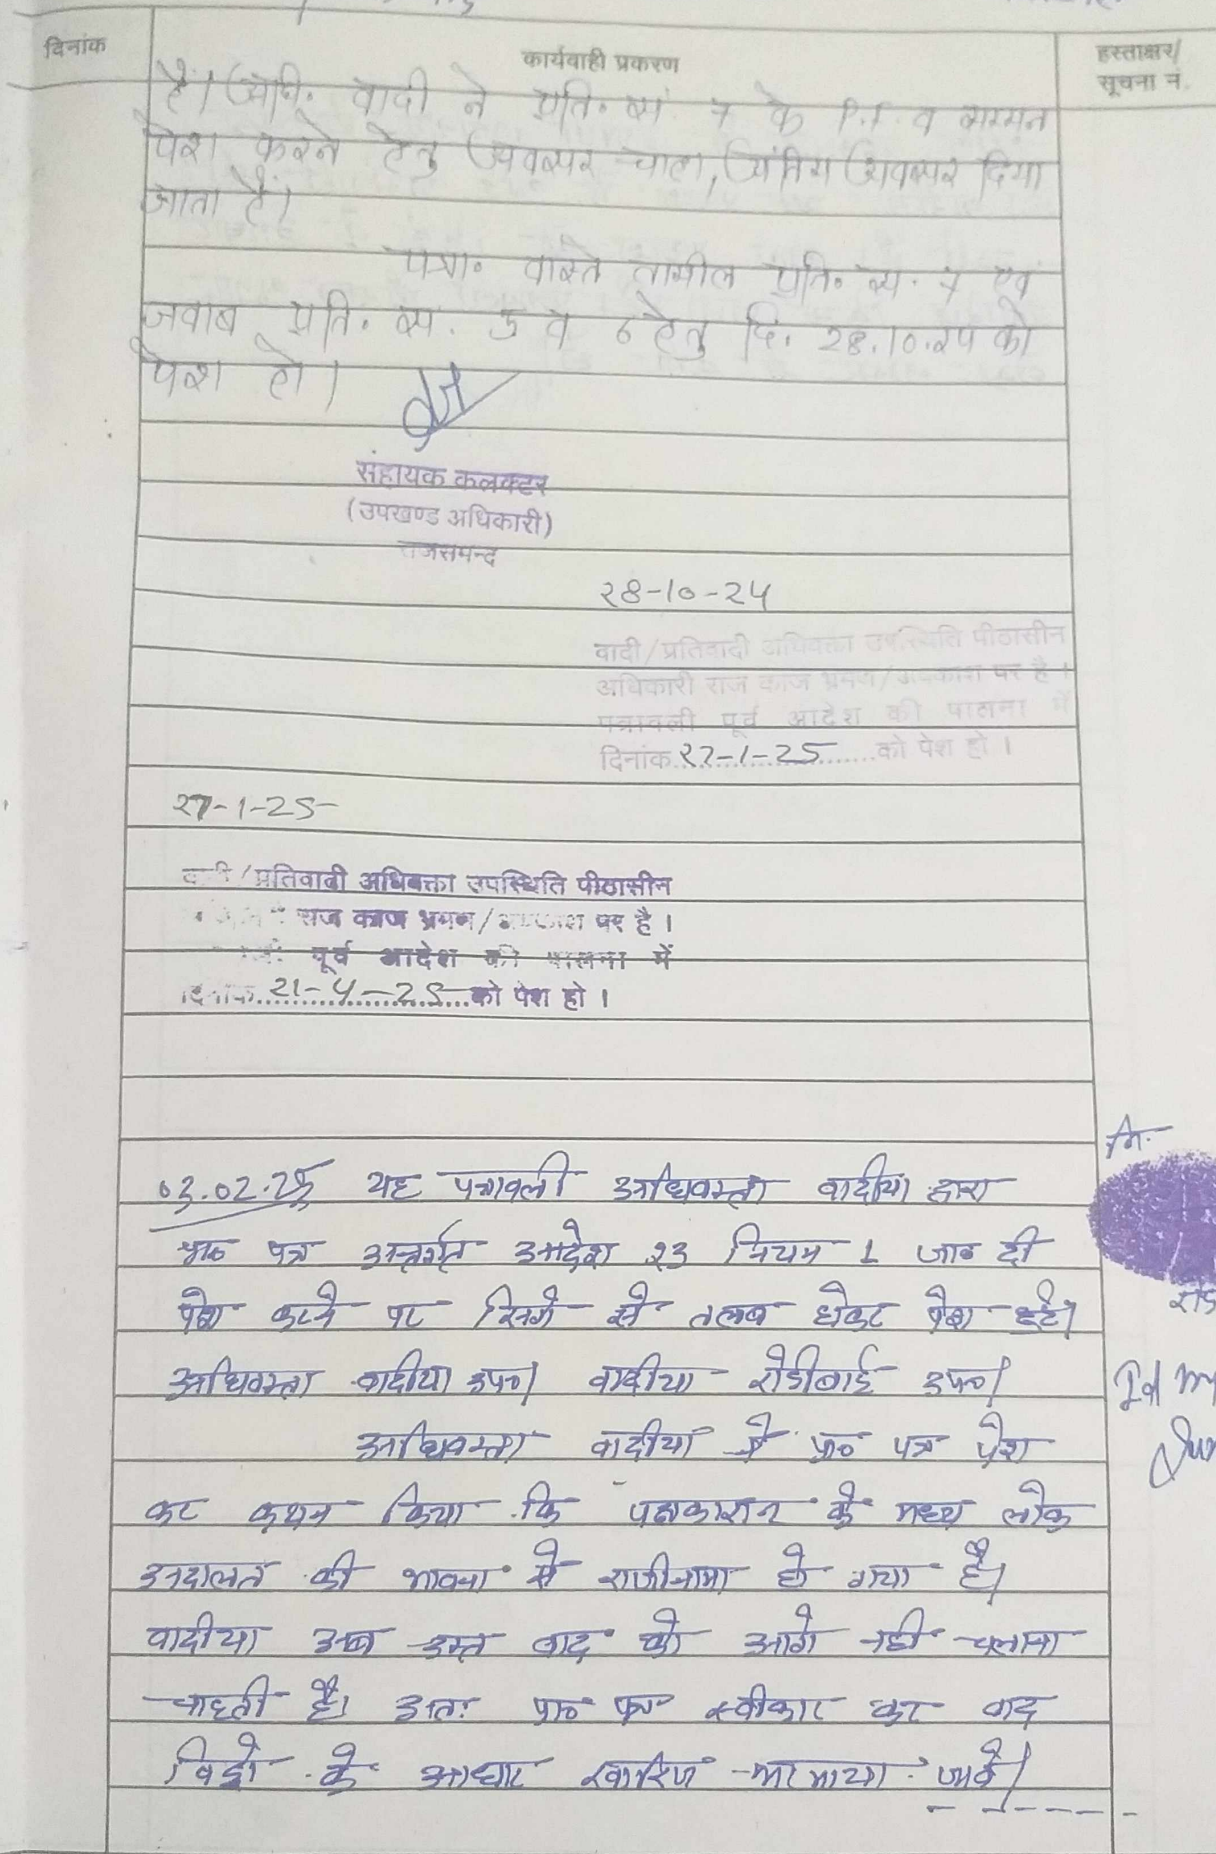 दिनांक
कार्यवाही प्रकरण
हस्ताक्षर/
सूचना नं.
है। अधि. वादी ने प्रति. सं. 7 के P.F. व सम्मन
पेश करने हेतु अवसर चाहा, अंतिम अवसर दिया
जाता है।
पत्रा. वास्ते तामील प्रति. स. 7 एवं
जवाब प्रति. स. 5 व 6 हेतु दि. 28.10.24 को
पेश हो।
सहायक कलक्टर
(उपखण्ड अधिकारी)
राजसमन्द
28-10-24
वादी/प्रतिवादी अधिवक्ता उपस्थिति पीठासीन
अधिकारी राज काज भ्रमण/अवकाश पर है।
पत्रावली पूर्व आदेश की पालना में
दिनांक 27-1-25 को पेश हो।
27-1-25
वादी/प्रतिवादी अधिवक्ता उपस्थिति पीठासीन
राज काज भ्रमण/अवकाश पर है।
पूर्व आदेश की पालना में
दिनांक 21-4-25 को पेश हो।
03.02.25 यह पत्रावली अधिवक्ता वादीया द्वारा
प्रा० पत्र अन्तर्गत आदेश 23 नियम 1 जा० दी
पेश करने पर रिनगे से तलब होकर पेश हुई।
अधिवक्ता वादीया उप०। वादीया रोडीबाई उप०।
अधिवक्ता वादीया ने प्रा० पत्र पेश
कर कथन किया कि पक्षकारान के मध्य लोक
अदालत की भावना से राजीनामा हो गया है।
वादीया अब उक्त वाद को आगे नही चलाना
चाहती है। अतः प्रा० पत्र स्वीकार कर वाद
विड्रो के आधार खारिज फरमाया जावे।
नि.